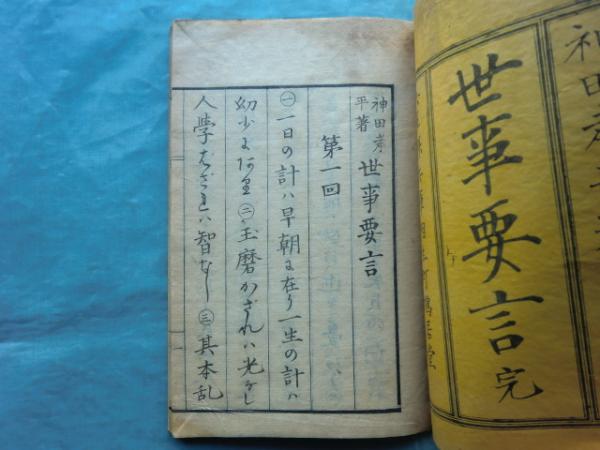 神田孝
世事要言 完
神田孝平著 世事要言
第一回
㊀一日の計ハ早朝に在り一生の計ハ
幼少にあり㊁玉磨かざれハ光なし
人學はざれハ智なし㊂其本乱